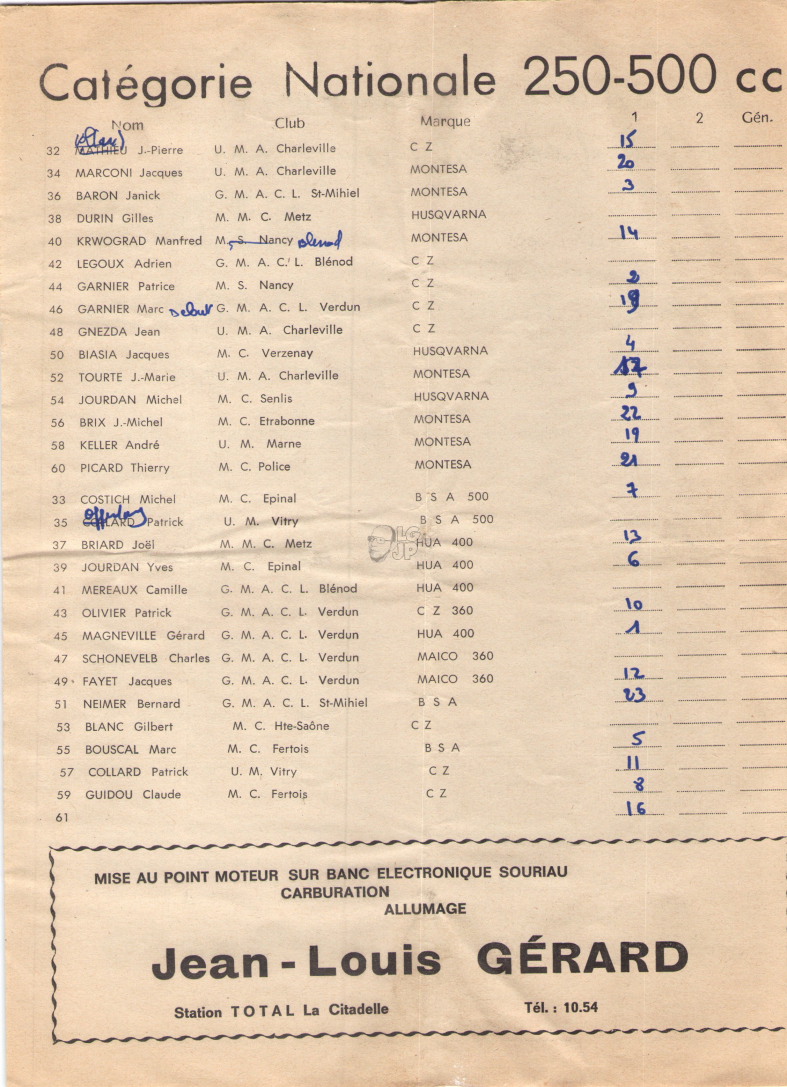 Catégorie Nationale 250-500 cc
Nom Club Marque 1 2 Gén.
32 MATHIEU J.-Pierre U. M. A. Charleville C Z 15
34 MARCONI Jacques U. M. A. Charleville MONTESA 20
36 BARON Janick G. M. A. C. L. St-Mihiel MONTESA 3
38 DURIN Gilles M. M. C. Metz HUSQVARNA
40 KRWOGRAD Manfred M. S. Nancy Blénod MONTESA 14
42 LEGOUX Adrien G. M. A. C. L. Blénod C Z
44 GARNIER Patrice M. S. Nancy C Z 2
46 GARNIER Marc Debut G. M. A. C. L. Verdun C Z
48 GNEZDA Jean U. M. A. Charleville C Z
50 BIASIA Jacques M. C. Verzenay HUSQVARNA 4
52 TOURTE J.-Marie U. M. A. Charleville MONTESA
54 JOURDAN Michel M. C. Senlis HUSQVARNA 9
56 BRIX J.-Michel M. C. Etrabonne MONTESA 22
58 KELLER André U. M. Marne MONTESA 19
60 PICARD Thierry M. C. Police MONTESA 21
33 COSTICH Michel M. C. Epinal B S A 500 7
35 COLLARD Patrick U. M. Vitry B S A 500
37 BRIARD Joël M. M. C. Metz HUA 400 13
39 JOURDAN Yves M. C. Epinal HUA 400 6
41 MEREAUX Camille G. M. A. C. L. Blénod HUA 400
43 OLIVIER Patrick G. M. A. C. L. Verdun C Z 360 10
45 MAGNEVILLE Gérard G. M. A. C. L. Verdun HUA 400 1
47 SCHONEVELB Charles G. M. A. C. L. Verdun MAICO 360
49 FAYET Jacques G. M. A. C. L. Verdun MAICO 360 12
51 NEIMER Bernard G. M. A. C. L. St-Mihiel B S A 23
53 BLANC Gilbert M. C. Hte-Saône C Z
55 BOUSCAL Marc M. C. Fertois B S A 5
57 COLLARD Patrick U. M. Vitry C Z 11
59 GUIDOU Claude M. C. Fertois C Z 8
61 16
LG
JP
MISE AU POINT MOTEUR SUR BANC ELECTRONIQUE SOURIAU
CARBURATION
ALLUMAGE
Jean-Louis GÉRARD
Station TOTAL La Citadelle Tél. : 10.54